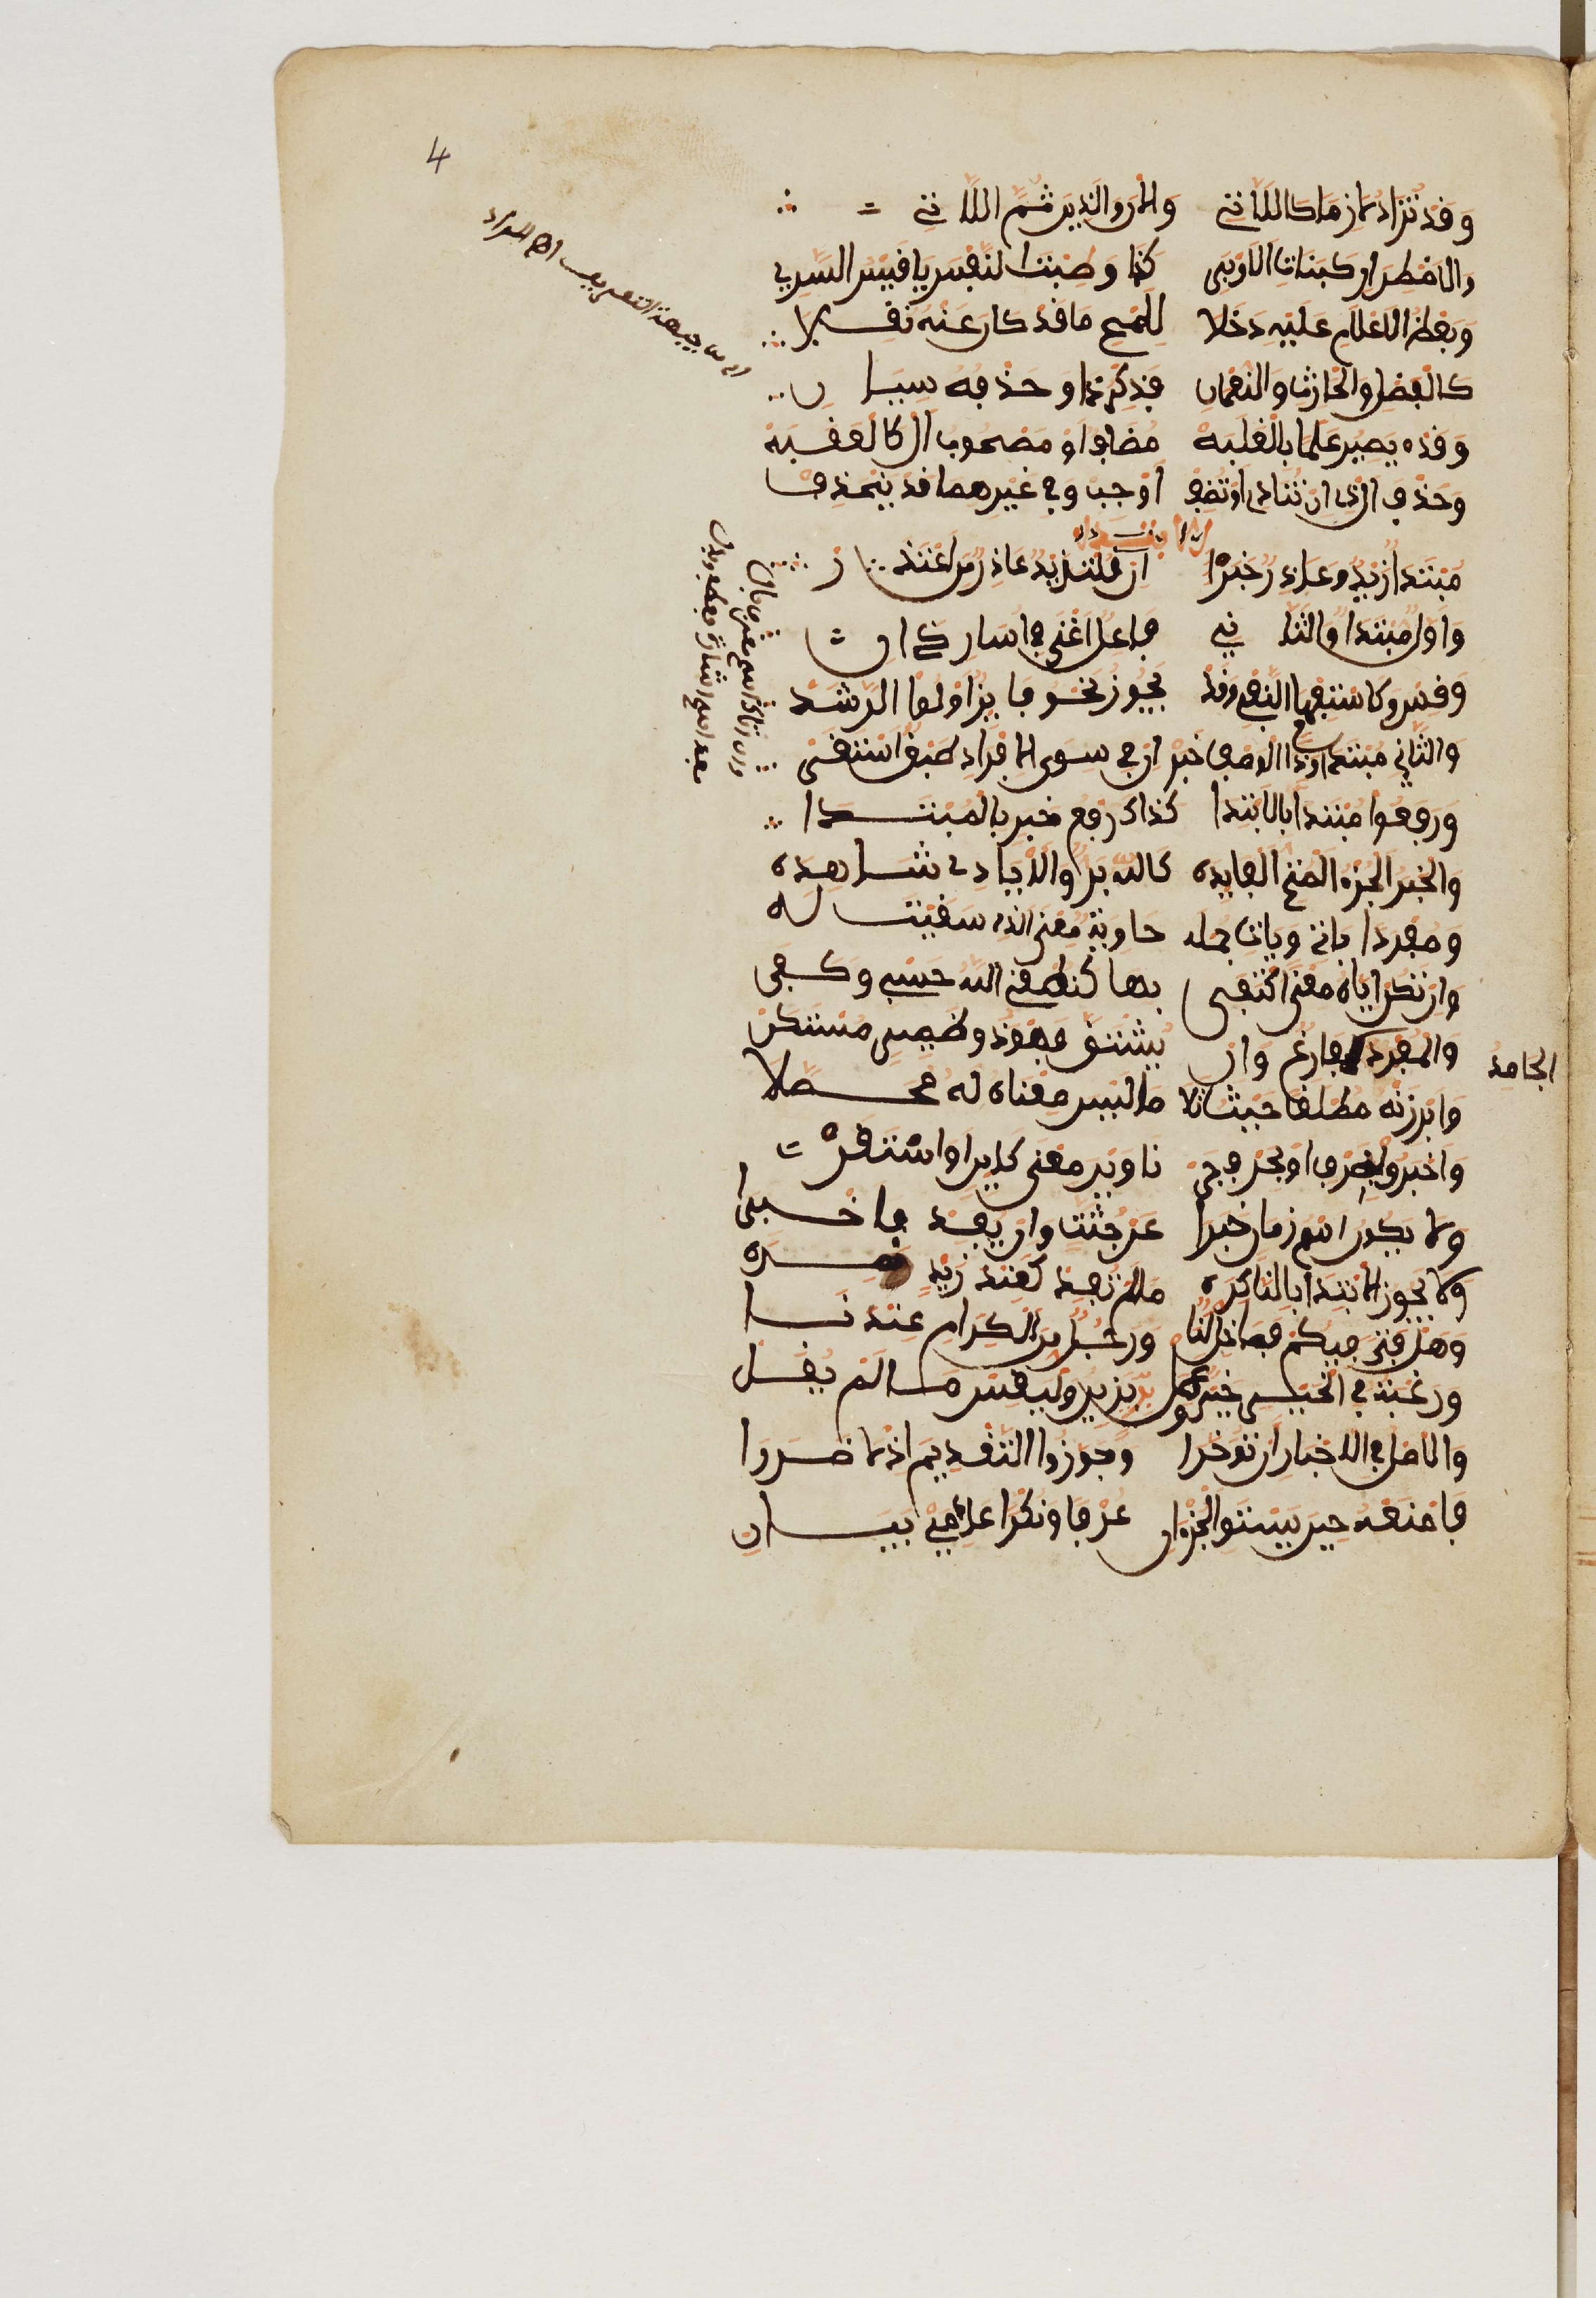 4
وقد تزاد لازما كاللات والان والذين ثم اللات
ولاضطرار كبنات الاوبر كذا وطبت النفس يا قيس السري
وبعض الاعلام عليه دخلا للمح ما قد كان عنه نقلا
كالفضل والحارث والنعمان فذكر ذا وحذفه سيان
وقد يصير علما بالغلبة مضاف او مصحوب ال كالعقبة
وحذف ال ذي ان تناد او تضف اوجب وفي غيرهما قد تنحذف
الابتداء
مبتدا زيد وعاذر خبر ان قلت زيد عاذر من اعتذر
واول مبتدا والثاني فاعل اغنى في اسار ذان
وقس وكاستفهام النفي وقد يجوز نحو فايز اولوا الرشد
والثاني مبتدا وذا الوصف خبر ان في سوى الافراد طبقا استقر
ورفعوا مبتدا بالابتدا كذاك رفع خبر بالمبتدا
والخبر الجزء المتم الفايده كالله بر والايادي شاهده
ومفردا ياتي وياتي جمله حاوية معنى الذي سيقت له
وان تكن اياه معنى اكتفى بها كنطقي الله حسبي وكفى
والمفرد فارغ وان يشتق فهو ذو ضمير مستكن
الجامد
وابرزنه مطلقا حيث تلا ما ليس معناه له محصلا
واخبروا بظرف او بحرف جر ناوين معنى كاين او استقر
ولا يكون اسم زمان خبرا عن جثة وان يفد فاخبرا
ولا يجوز الابتدا بالنكره ما لم تفد كعند زيد نمره
وهل فتى فيكم فما خل لنا ورجل من الكرام عندنا
ورغبة في الخير خير وعمل بر يزين وليقس ما لم يقل
والاصل في الاخبار ان توخرا وجوزوا التقديم اذ لا ضررا
فامنعه حين يستوي الجزءان عرفا ونكرا عادمي بيان